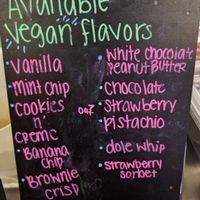 Available
vegan flavors
vanilla
mint chip
cookies
n'
creme
Banana
chip
Brownie
crisp
white chocolate
peanut butter
chocolate
strawberry
pistachio
dole whip
strawberry
sorbet